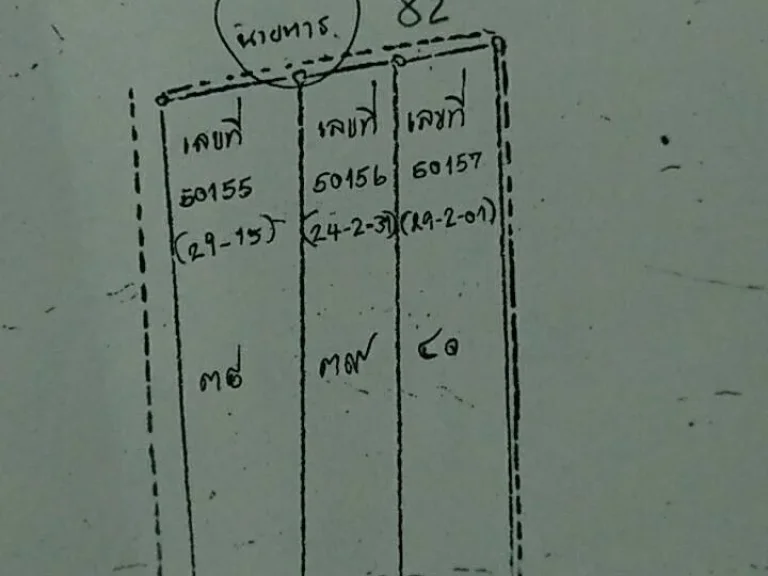 นายทาร
82
เลขที่
50155
(29-15)
เลขที่
50156
(24-2-31)
เลขที่
50157
(29-2-01)
๓๘
๓๙
๔๐